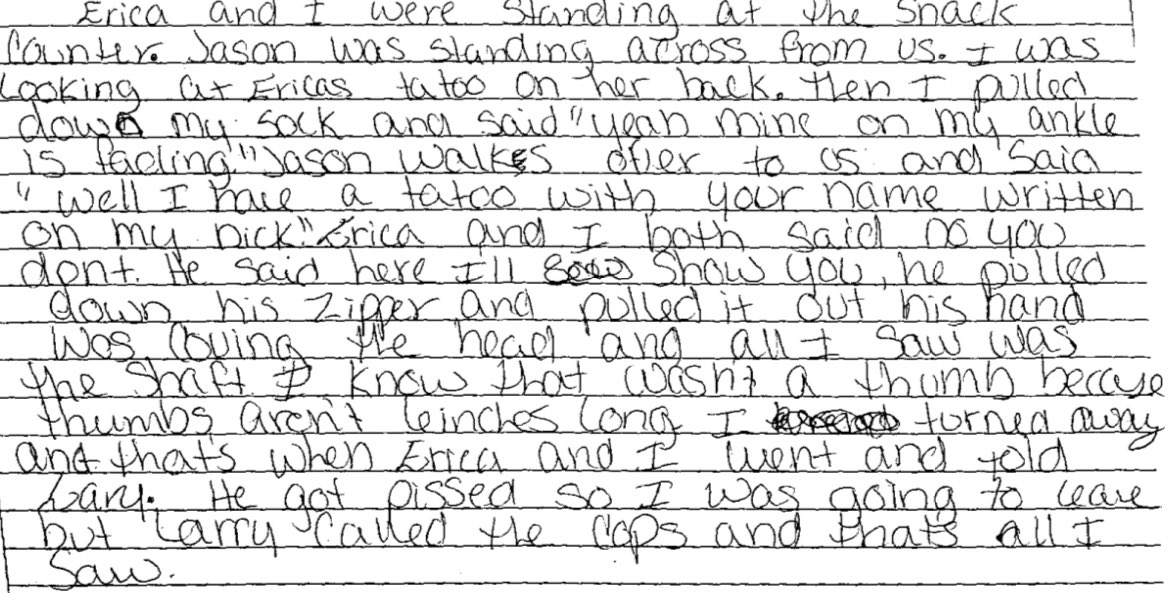 Erica and I were standing at the snack
Counter. Jason was standing across from us. I was
Looking at Ericas tatoo on her back. then I pulled
down my sock and said "yeah mine on my ankle
is fading." Jason walkes ofier to us and said
"well I have a tatoo with your name written
on my dick." Erica and I both said no you
dont. He said here I'll show you, he pulled
down his zipper and pulled it out his hand
was coving the head and all I saw was
the shaft I know that wasn't a thumb becuse
thumbs aren't 6inches long I turned away
and thats when Erica and I went and told
Lary. He got pissed so I was going to leave
but Larry called the cops and thats all I
saw.